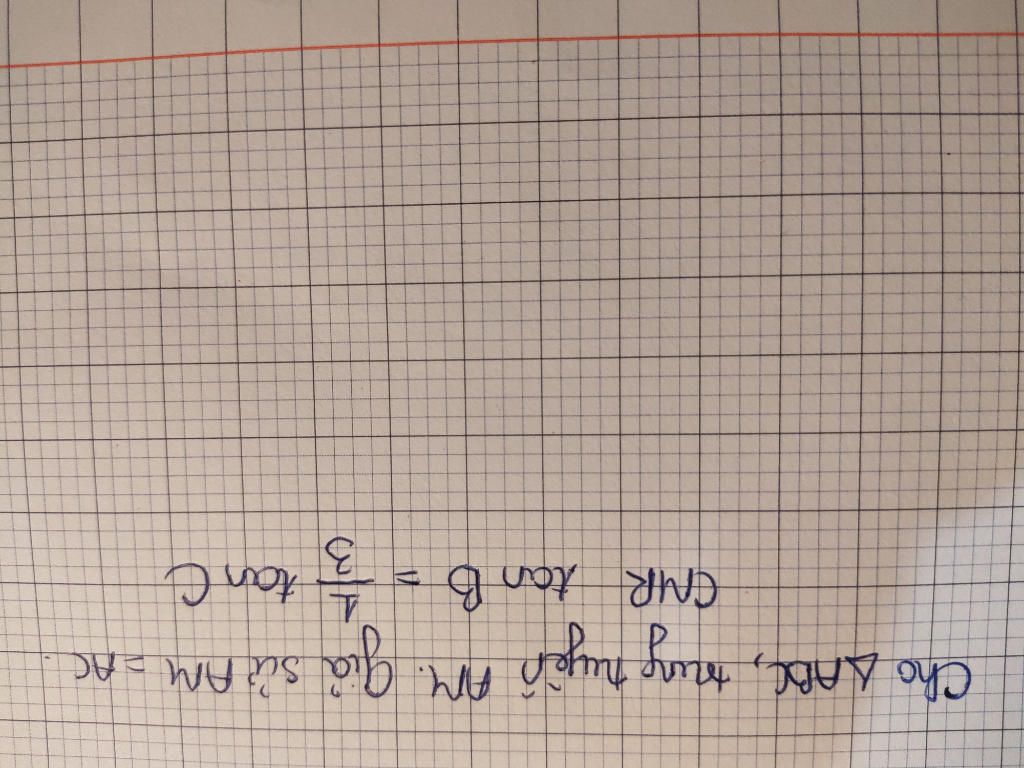 Cho ΔABC, trung tuyến AM. Giả sử AM = AC.
CMR tan B = 1/3 tan C